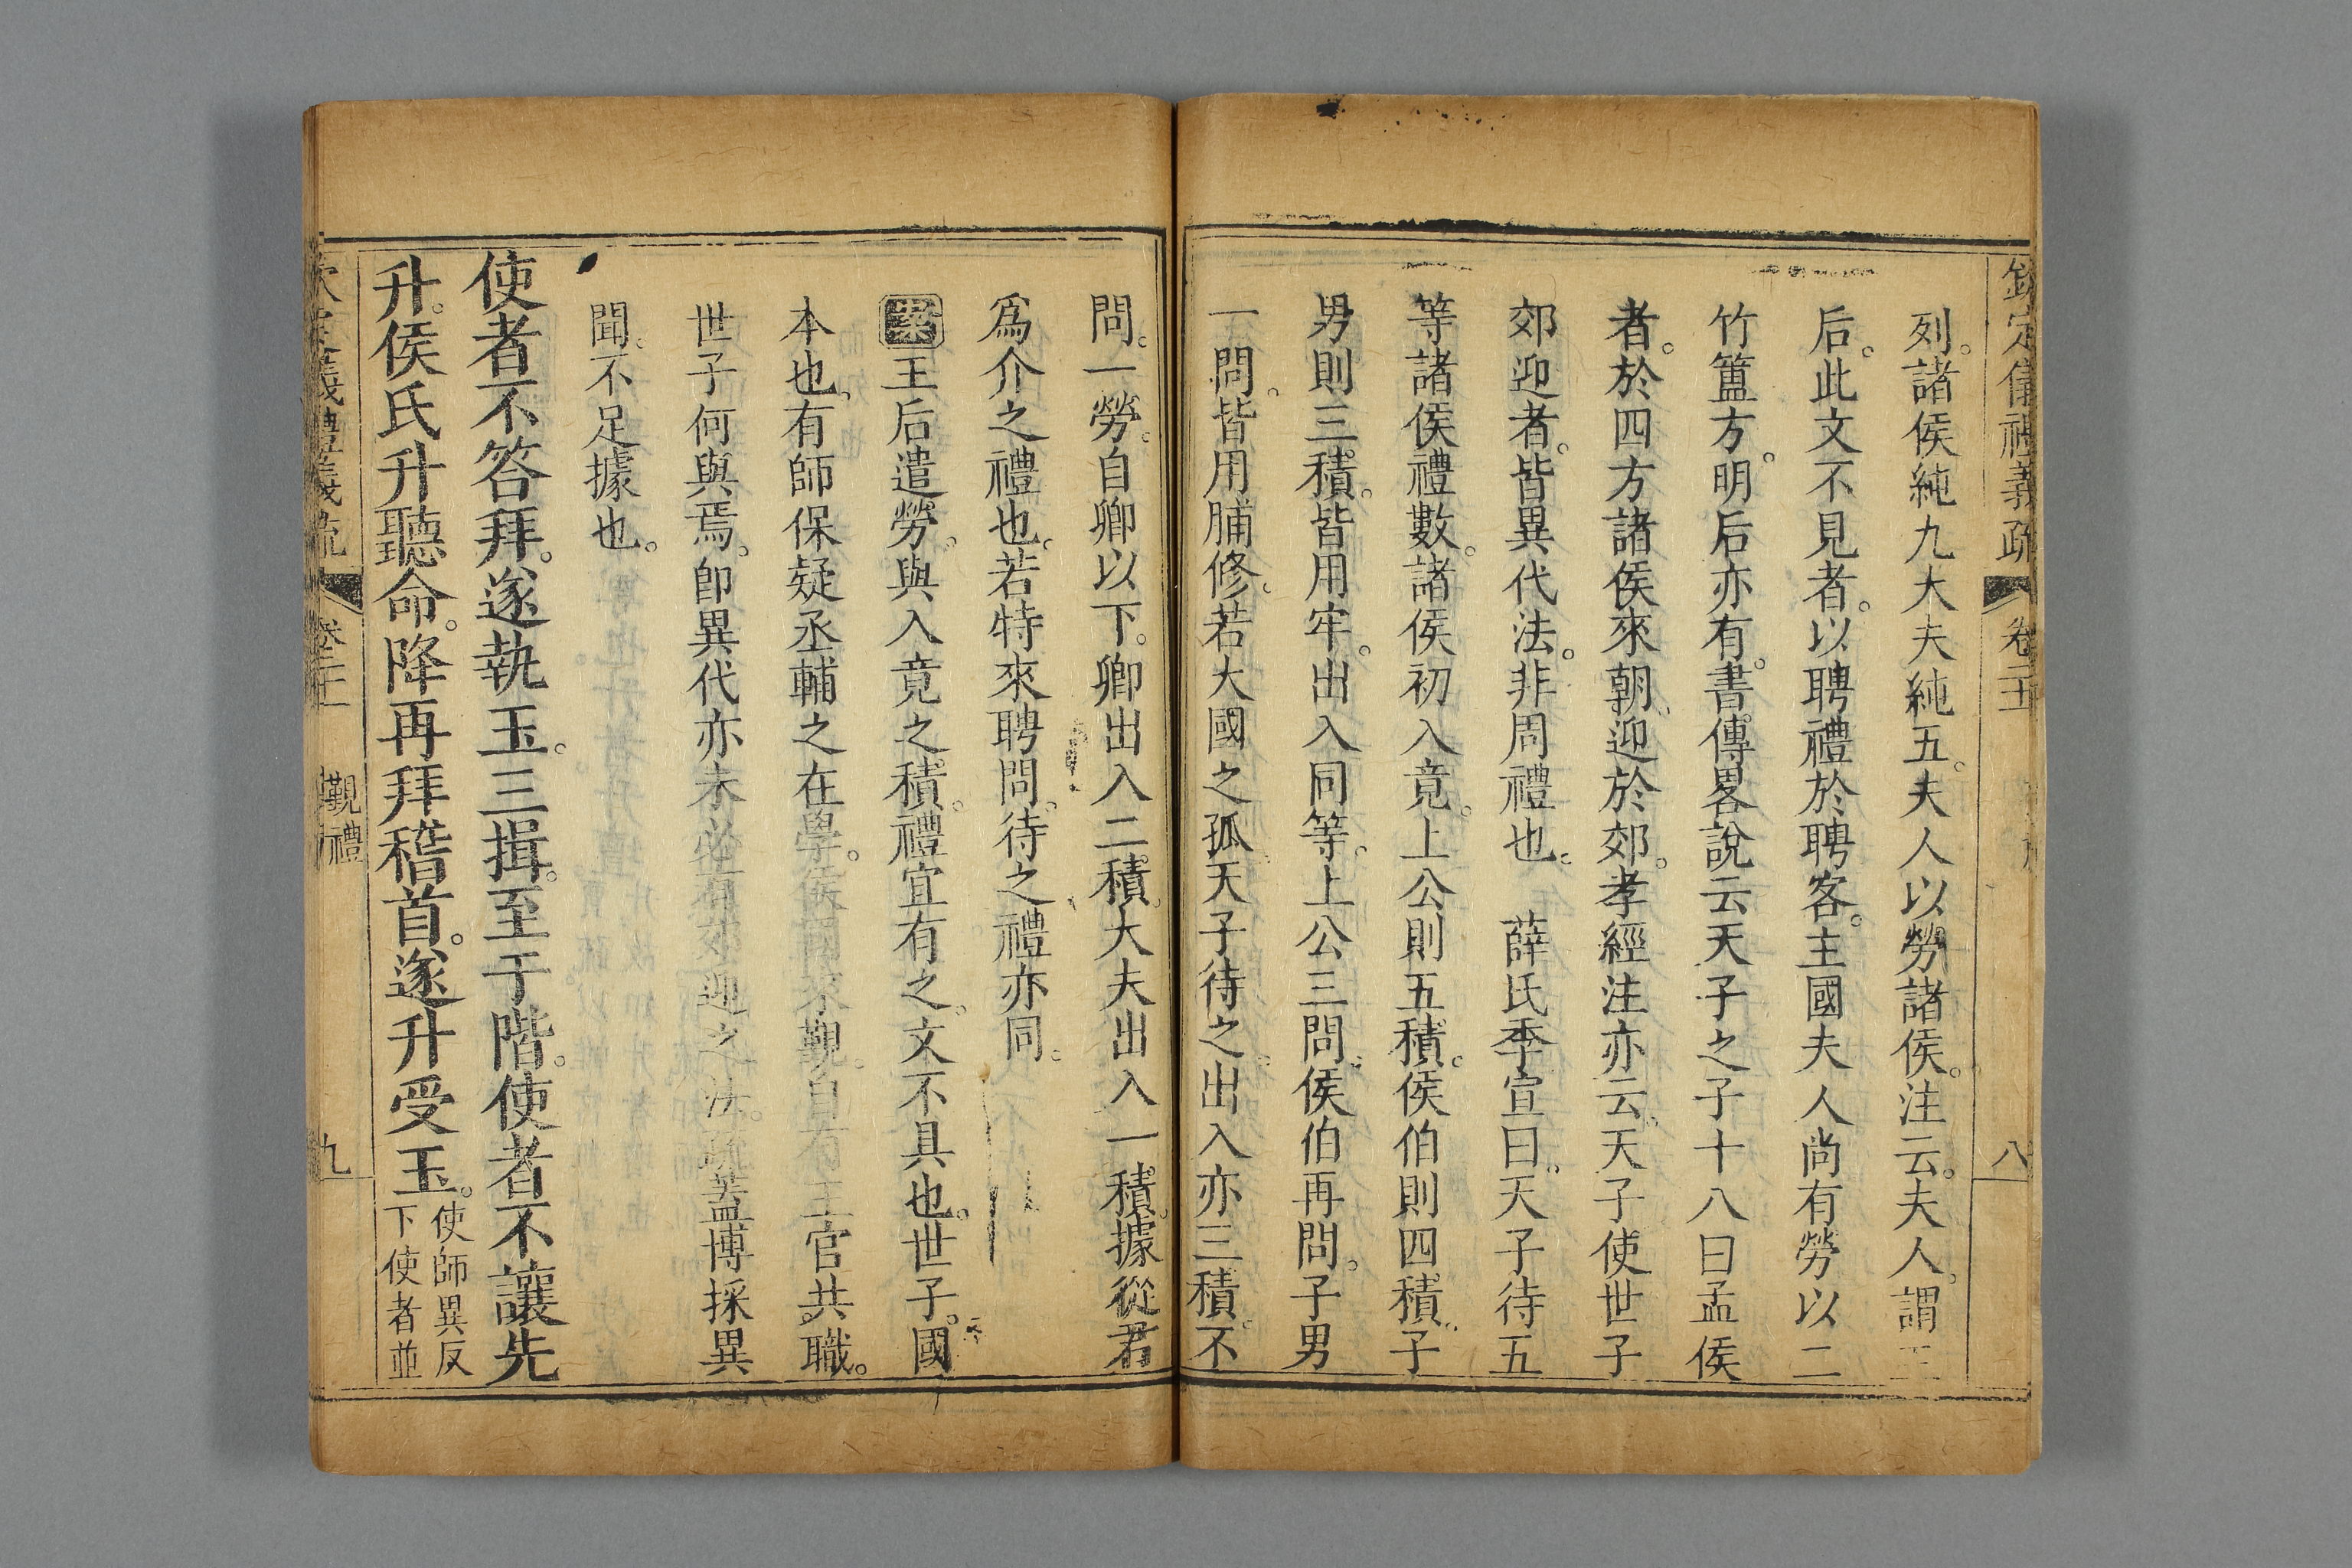 欽定儀禮義疏 卷二五 八
列。諸侯純九大夫純五。夫人以勞諸侯。注云。夫人。謂王
后。此文不見者。以聘禮於聘客。主國夫人尚有勞以二
竹簠方。明后亦有。書傳畧說云天子之子十八曰孟侯
者。於四方諸侯來朝。迎於郊。孝經注亦云。天子使世子
郊迎者。皆異代法。非周禮也。 薛氏季宣曰。天子待五
等諸侯禮數。諸侯初入竟。上公則五積。侯伯則四積。子
男則三積。皆用牢。出入同等。上公三問。侯伯再問。子男
一問。皆用脯修。若大國之孤。天子待之。出入亦三積。不
問。一勞。自卿以下。卿出入二積。大夫出入一積。據從君
爲介之禮也。若特來聘問。待之禮亦同。
案王后遣勞。與入竟之積。禮宜有之。文不具也。世子。國
本也。有師保疑丞輔之在學。侯國來覲。自有王官共職。
世子何與焉。卽異代亦未必有郊迎之法。疏蓋博採異
聞。不足據也。
使者不答拜。遂執玉。三揖。至于階。使者不讓先
升。侯氏升聽命。降再拜稽首。遂升受玉。使師異反
下使者並
覲禮 九